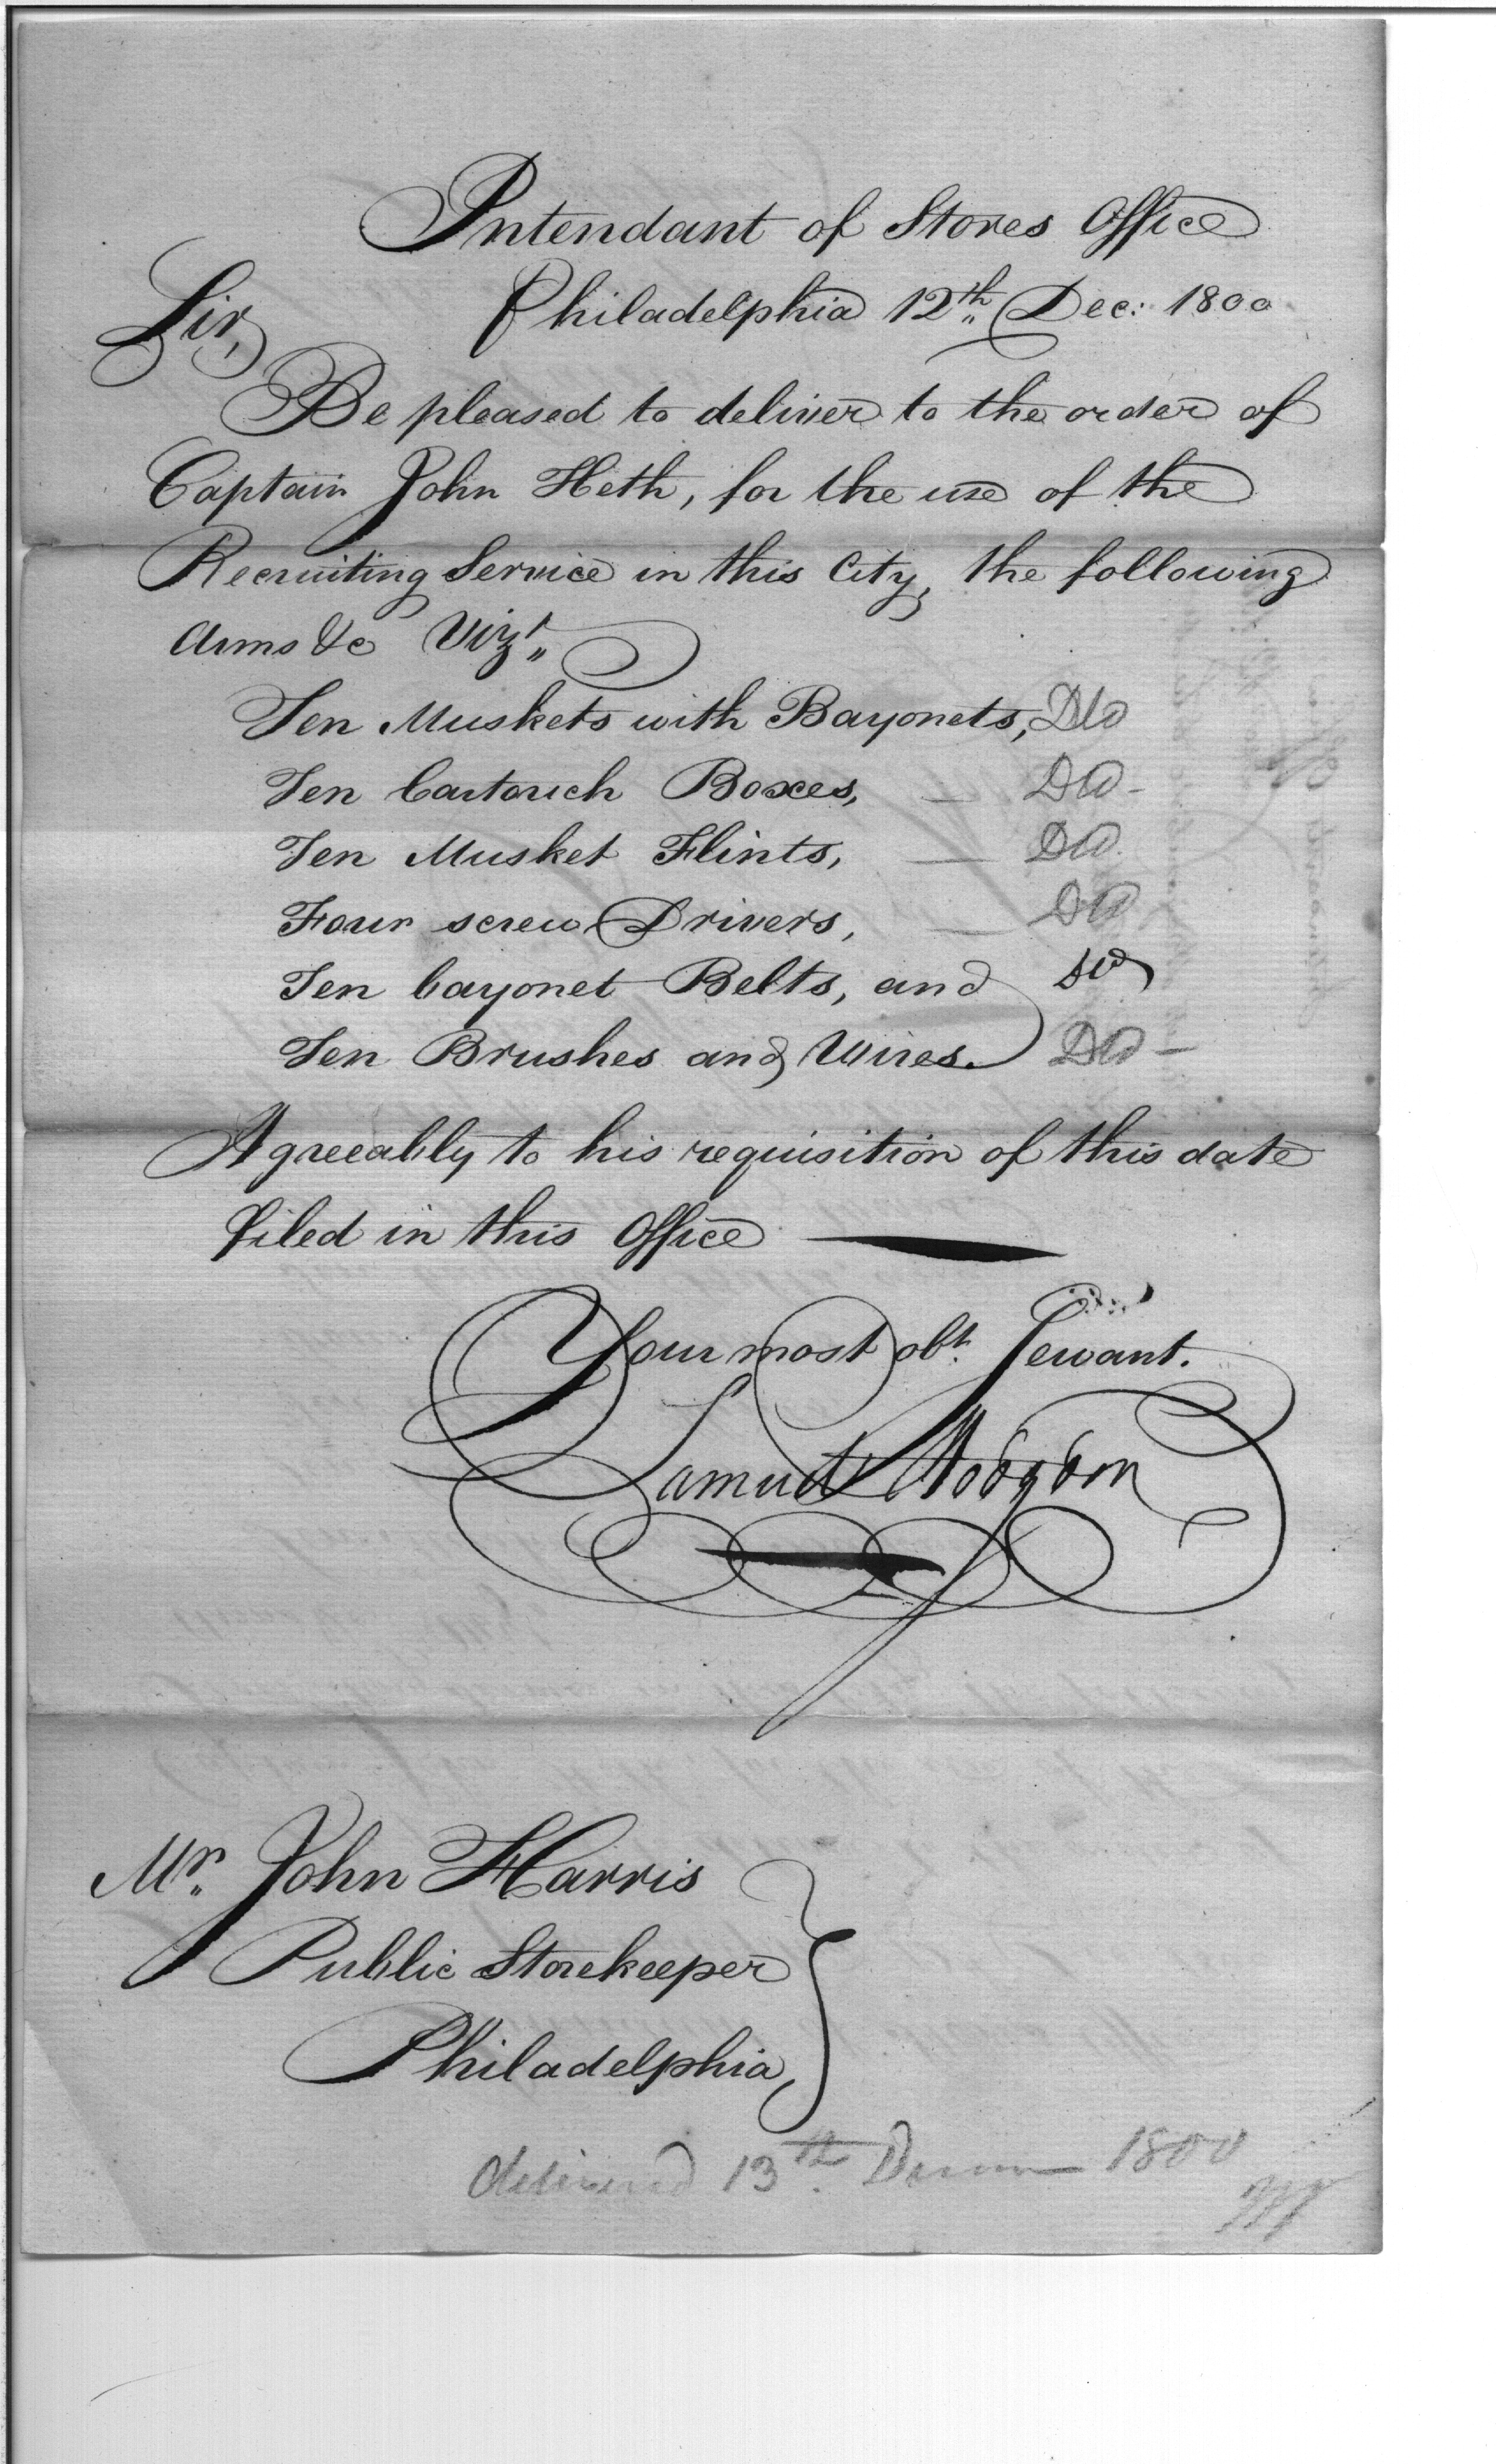 Intendant of Stores Office
Philadelphia 12th Dec: 1800
Sir,
Be pleased to deliver to the order of
Captain John Heth, for the use of the
Recruiting Service in this City, the following
Arms &c Vizt
Ten Muskets with Bayonets, Dld
Ten Cartouch Boxes, — Dld -
Ten Musket Flints, — Dld.
Four screw Drivers, — Dld
Ten bayonet Belts, and Dld
Ten Brushes and Wires. Dld -
Agreeably to his requisition of this date
filed in this Office —
Your most obt. Servant.
Samuel Hodgdon
Mr. John Harris
Public Storekeeper
Philadelphia,
delivered 13th 1800